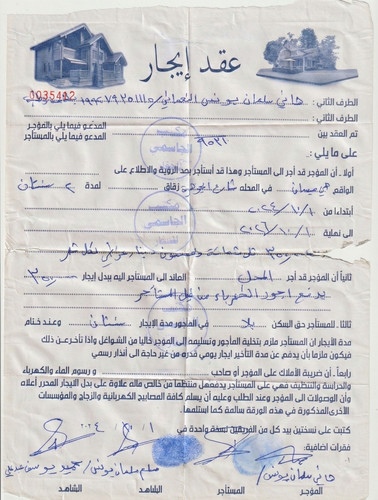 عقد إيجار
0035442
الطرف الثاني : هاني سلمان يونس
الطرف الثاني :
المدعو فيما يلي بالمؤجر
تم العقد بين
المدعو فيما يلي بالمستأجر
على ما يلي :
أولا . أن المؤجر قد أجر الى المستأجر وهذا قد أستأجر بعد الرؤية والاطلاع على
الواقع حي ميسان في المحله شارع زقاق لمدة ٢ سنتان
أبتداءا من ٢٠٢٤/١٠/١
الى نهاية ٢٠٢٦/١٠/١
٣٥٠ دينار عراقي لكل شهر
ثانياً أن المؤجر قد أجر المحل العائد الى المستأجر اليه ببدل إيجار ٣٥٠
يدفع اجور الكهرباء من قبل المستأجر
ثالثا . للمستأجر حق السكن بلا في المأجور مدة الإيجار سنتان وعند ختام
مدة الأيجار ان المستأجر ملزم بتخلية المأجور وتسليمه إلى المؤجر خاليا من الشواغل واذا تأخر عن ذلك
فيكون ملزما بأن يدفع عن مدة التأخير ايجار يومي قدره من غير حاجة الى أنذار رسمي
رابعاً . أن ضريبة الأملاك على المؤجر أو صاحب و رسوم الماء والكهرباء
والحراسة والتنظيف فهي على المستأجر يدفعهل منتظماً من خالص ماله علاوة على بدل الايجار المحرر أعلاه
وأن الوصولات الى المؤجر وعند الطلب وعليه أن يسلم كافة المصابيح الكهربائية والزجاج والمؤسسات
الأخرى المذكورة في هذه الورقة سالمة كما استلمها .
كتبت على نسختين بيد كل من الفريقين نسخة واحدة في ٢٠٢٤/١٠/١
فقرات اضافية :
هاني سلمان يونس
سلمان يونس
يوسف
المؤجر
المستأجر
الشاهد
الشاهد